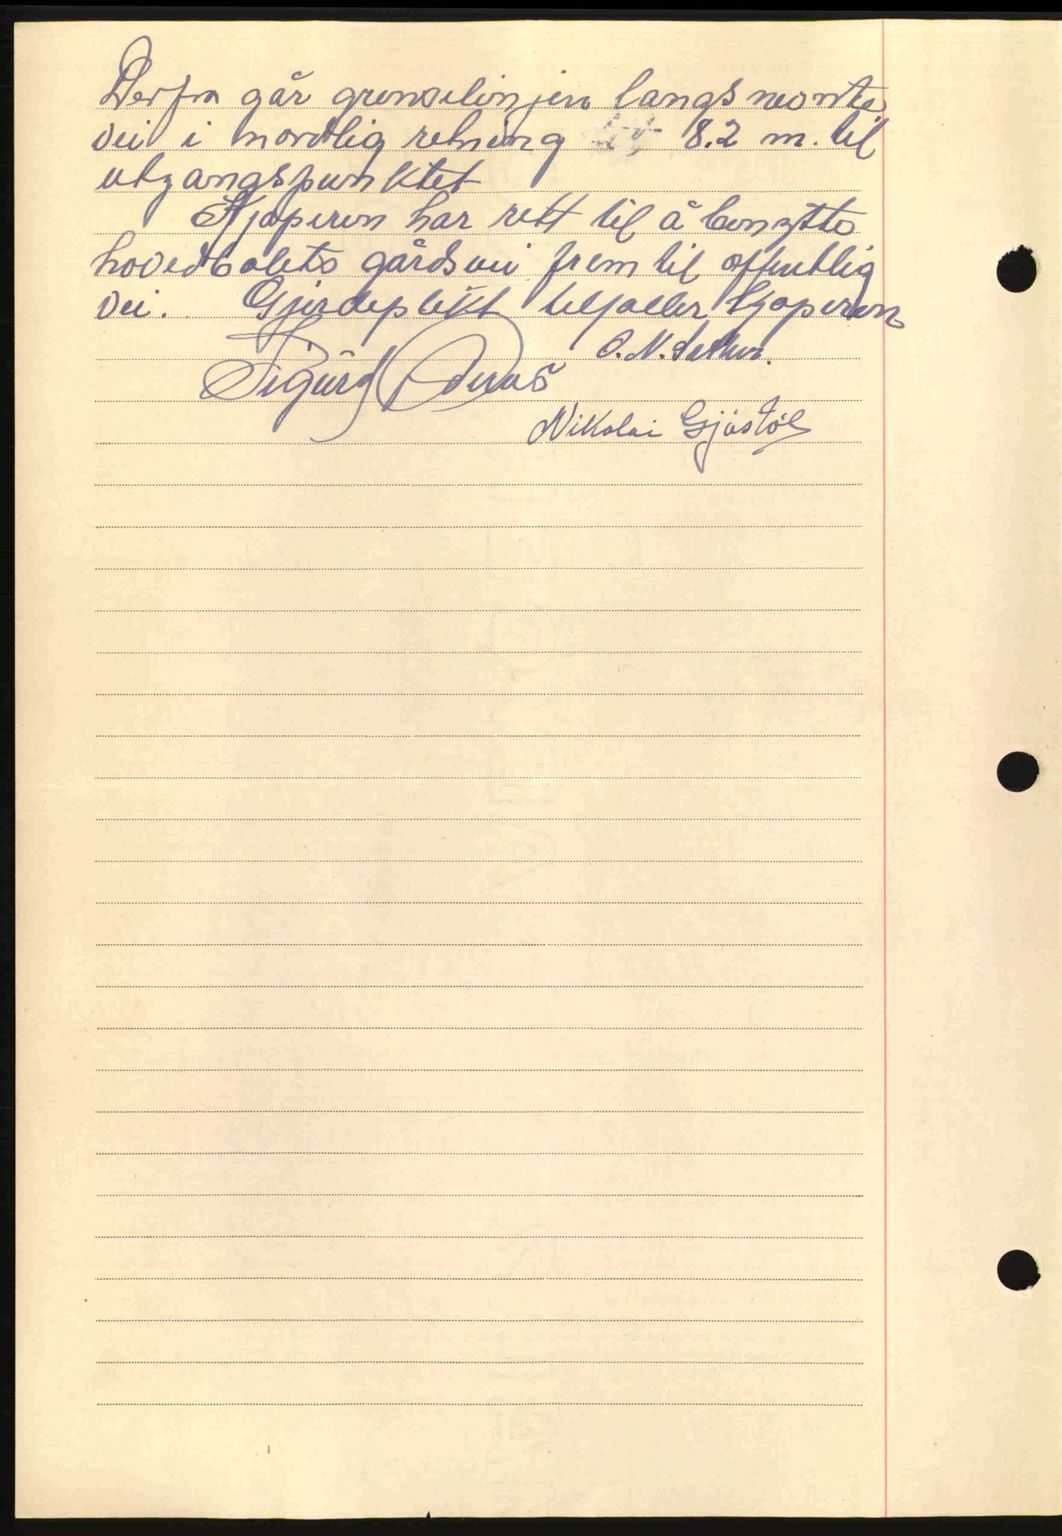 Derfra går grenselinjen langs nevnte
vei i nordlig retning 8.2 m. til
utgangspunktet
Kjøperen har rett til å benytte
hovedbølets gårdsvei frem til offentlig
vei. Gjerdeplikt tilfaller kjøperen
O. N.
Sigurd
Nikolai Gjøstøl